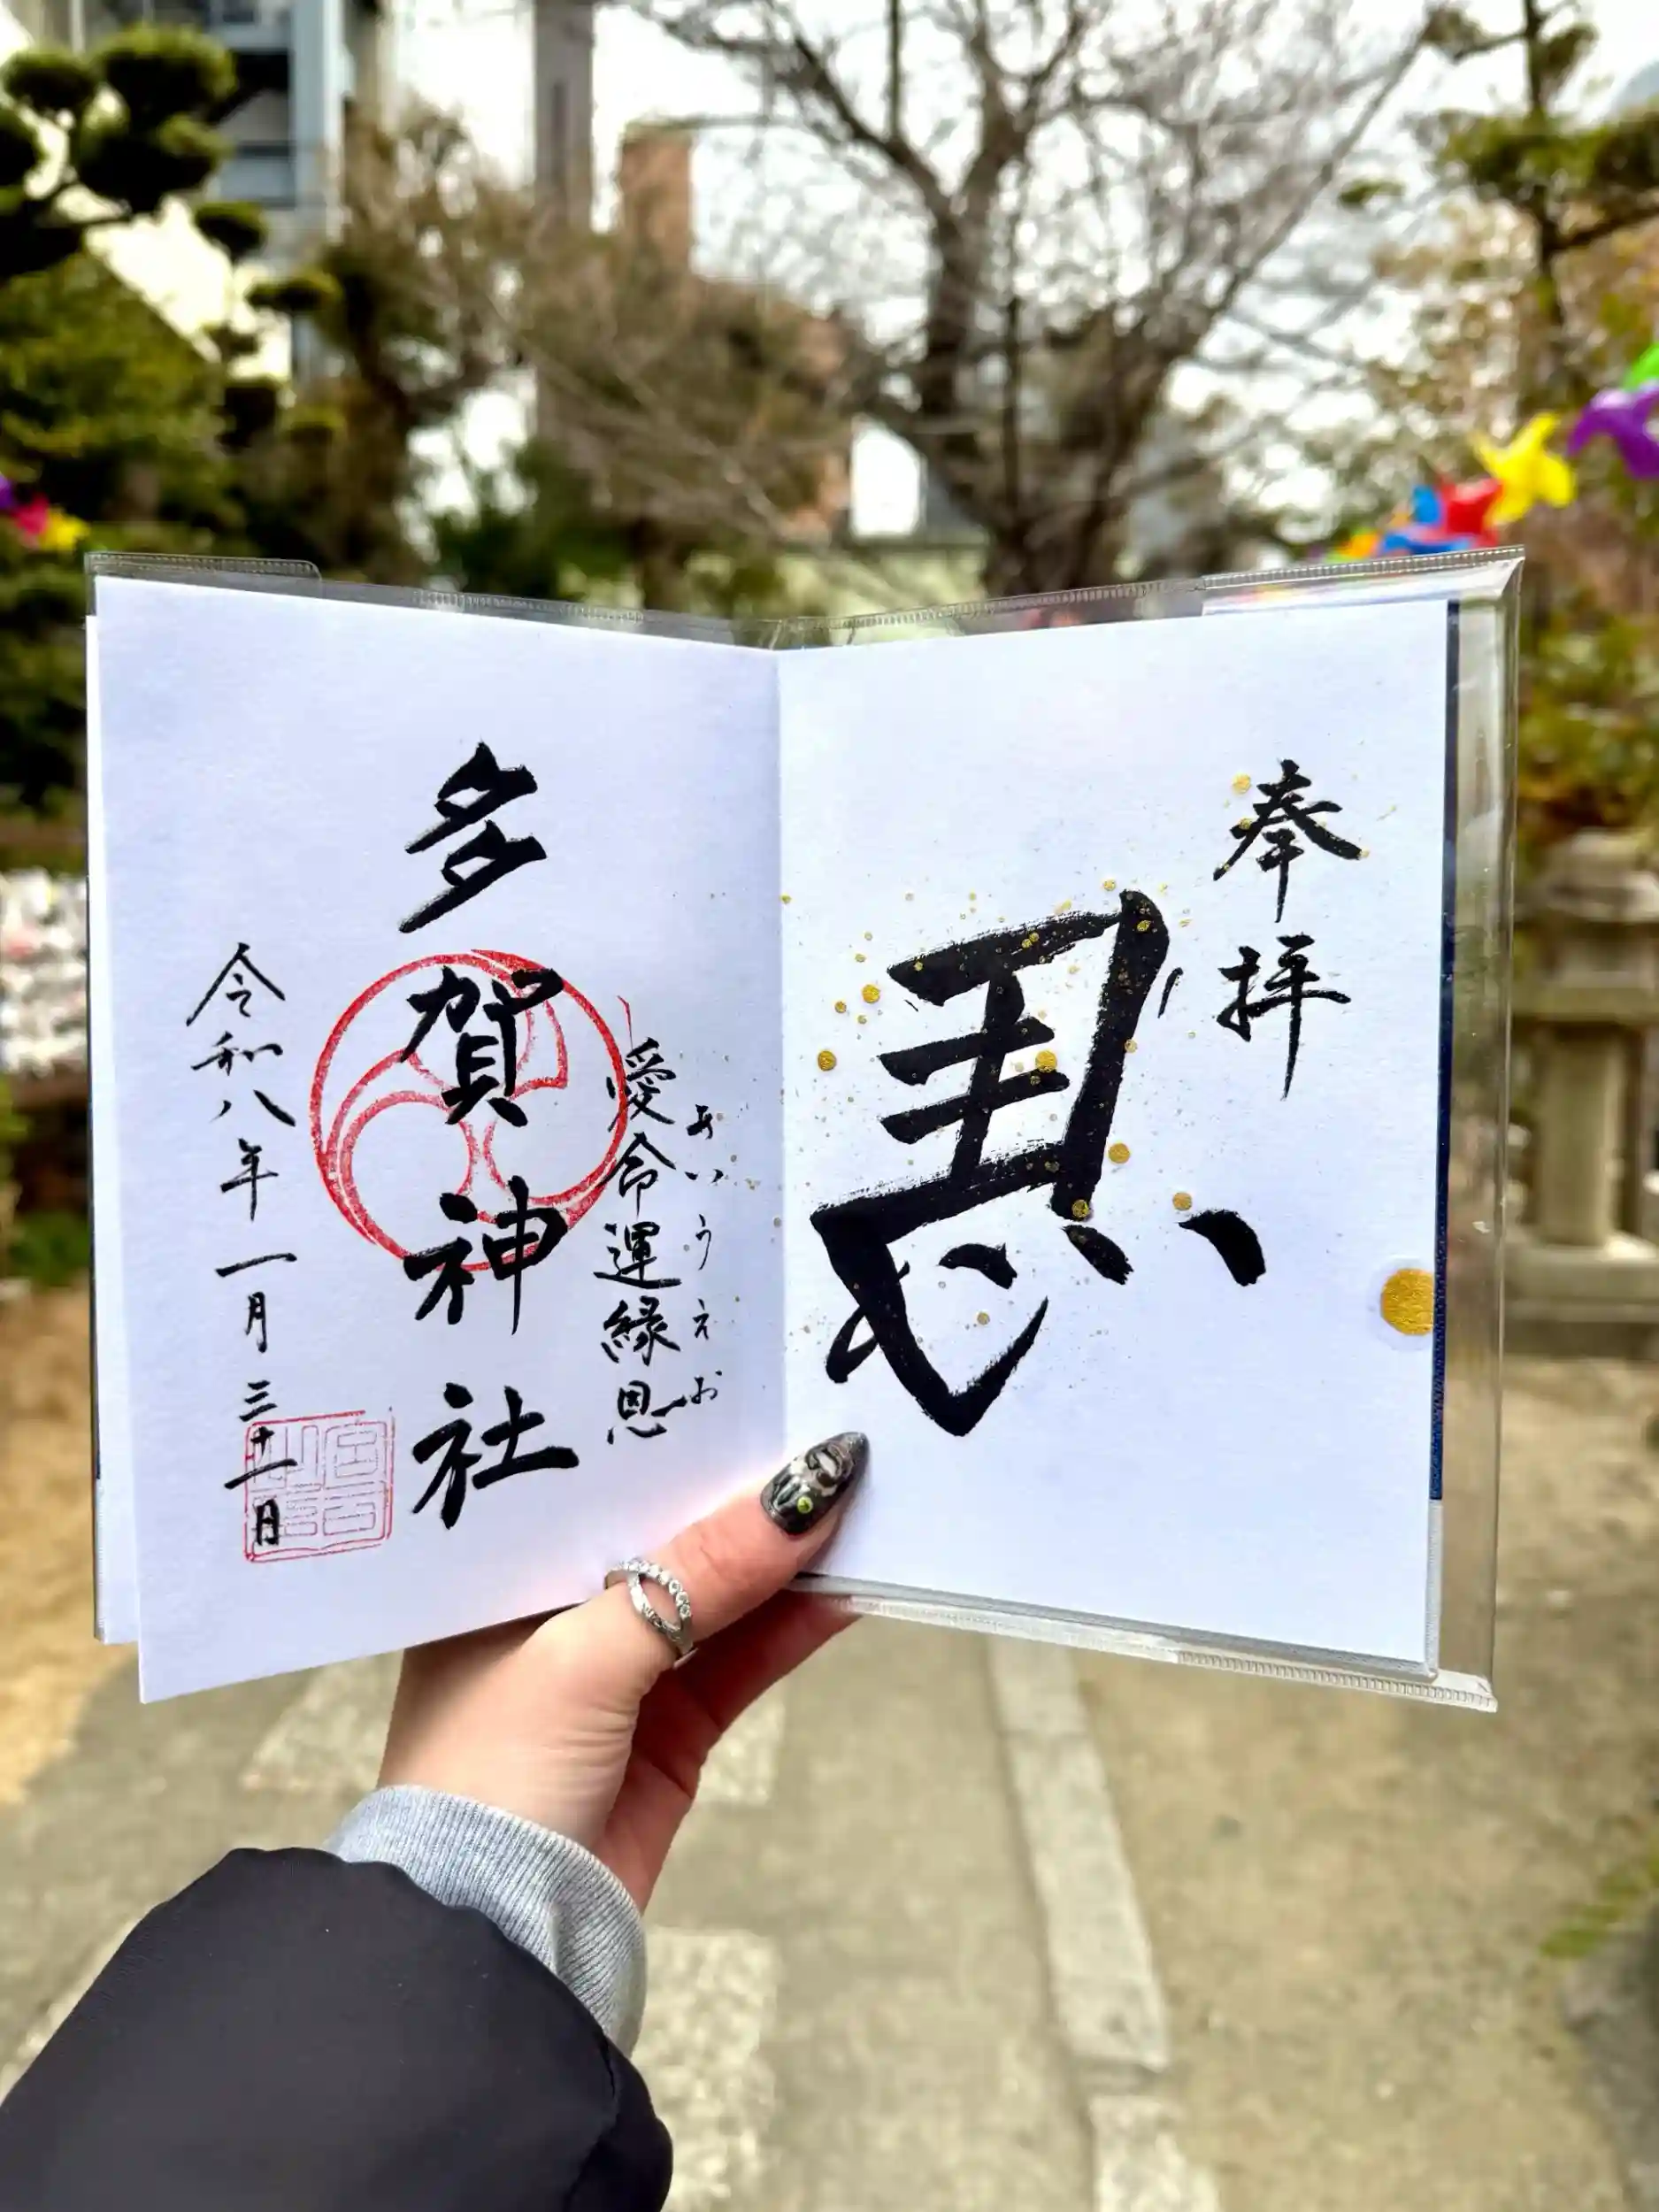 奉拝
恩
あいうえお
愛命運縁恩
多賀神社
令和八年一月三十一日